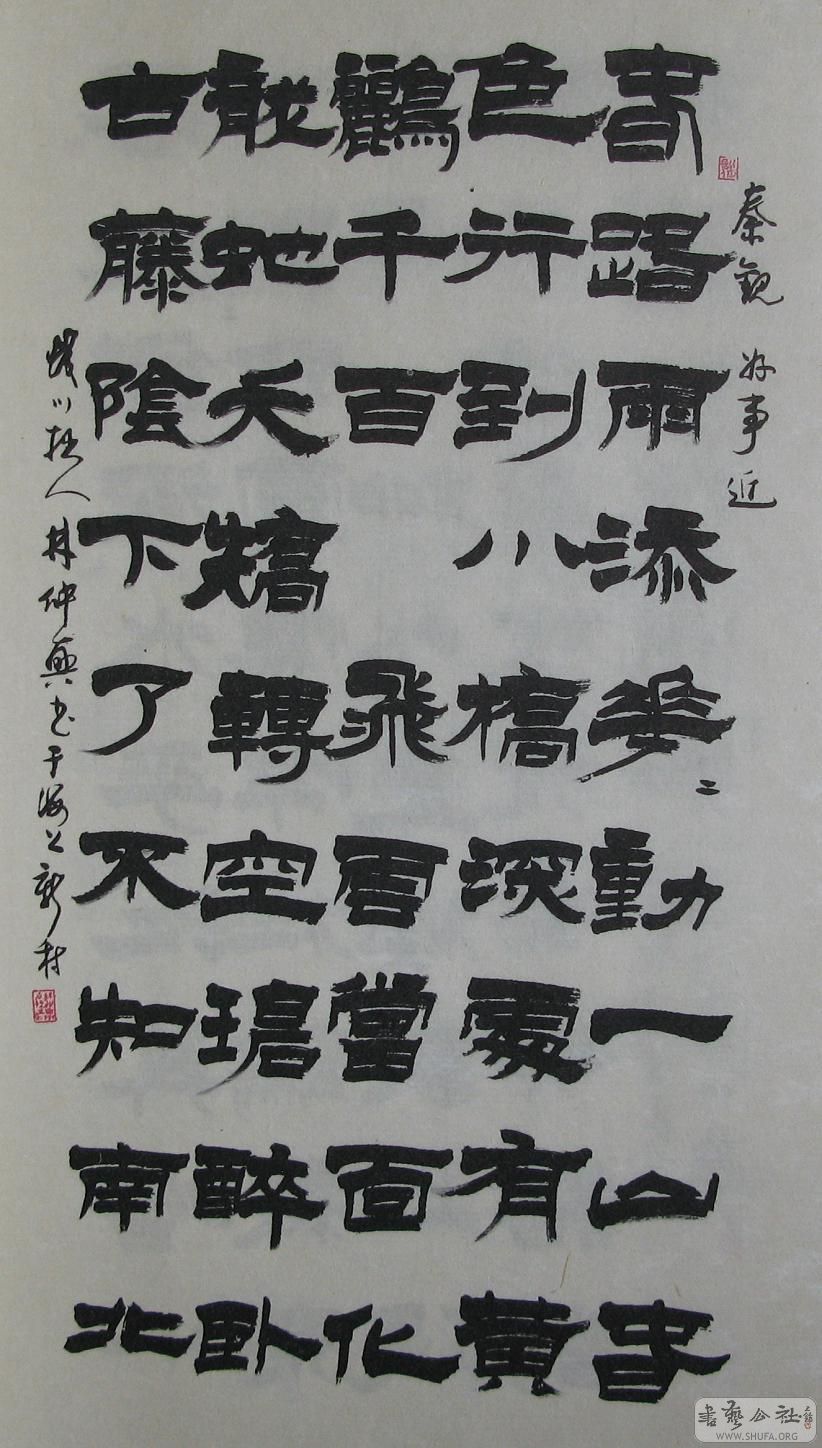 秦觀 好事近
春路雨添花二動一山春
色行到小橋深處有黃
鸝千百 飛雲當面化
龍蛇夭矯轉空碧醉臥
古藤陰下了不知南北
林仲興書于海上新村
書藝公社
WWW.SHUFA.ORG